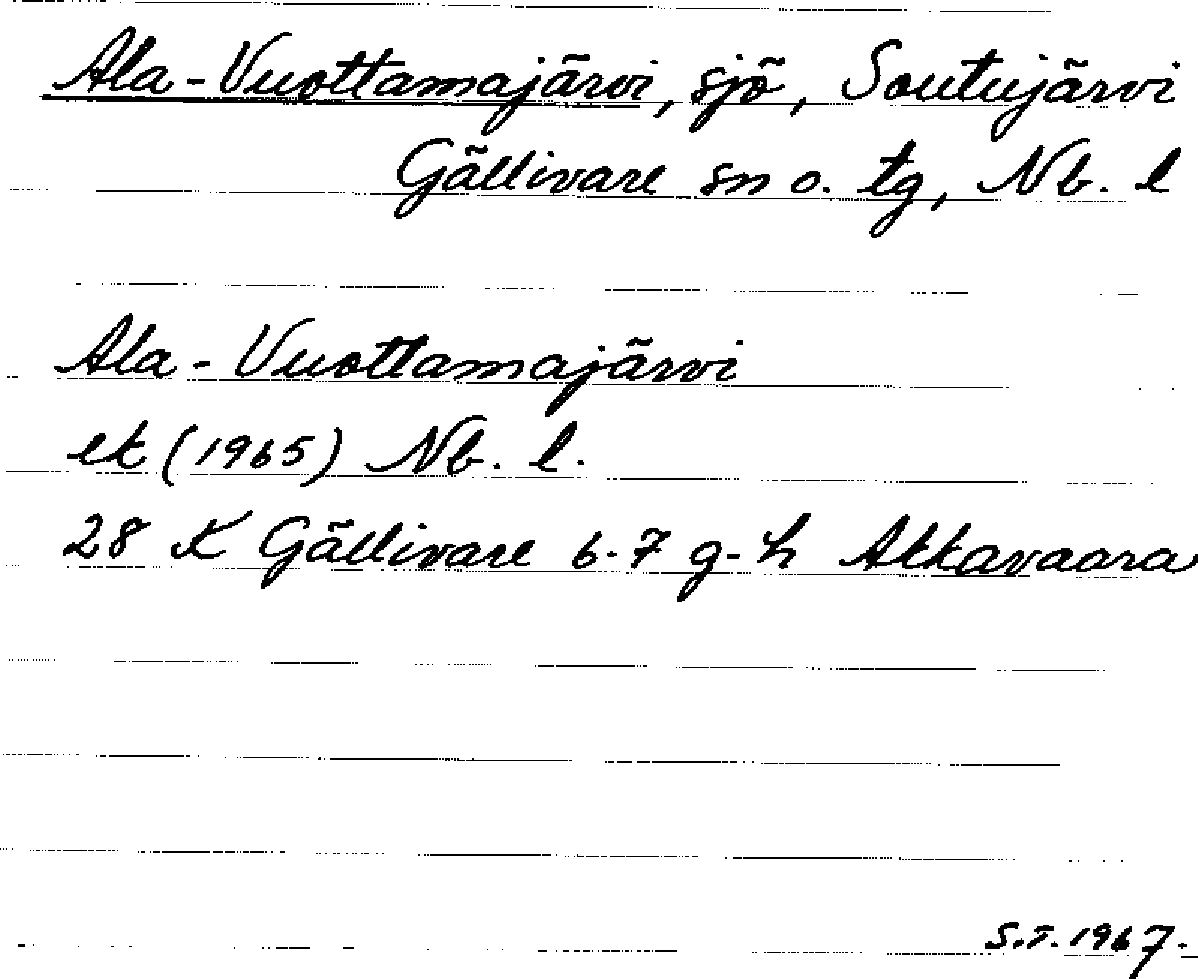 Ala-Vuottamajärvi, sjö, Soutujärvi
Gällivare sn o. tg, Nb. l
Ala-Vuottamajärvi
ek (1965) Nb. l.
28 K Gällivare 6-7 g-h Akkavaara
S.T. 1967.